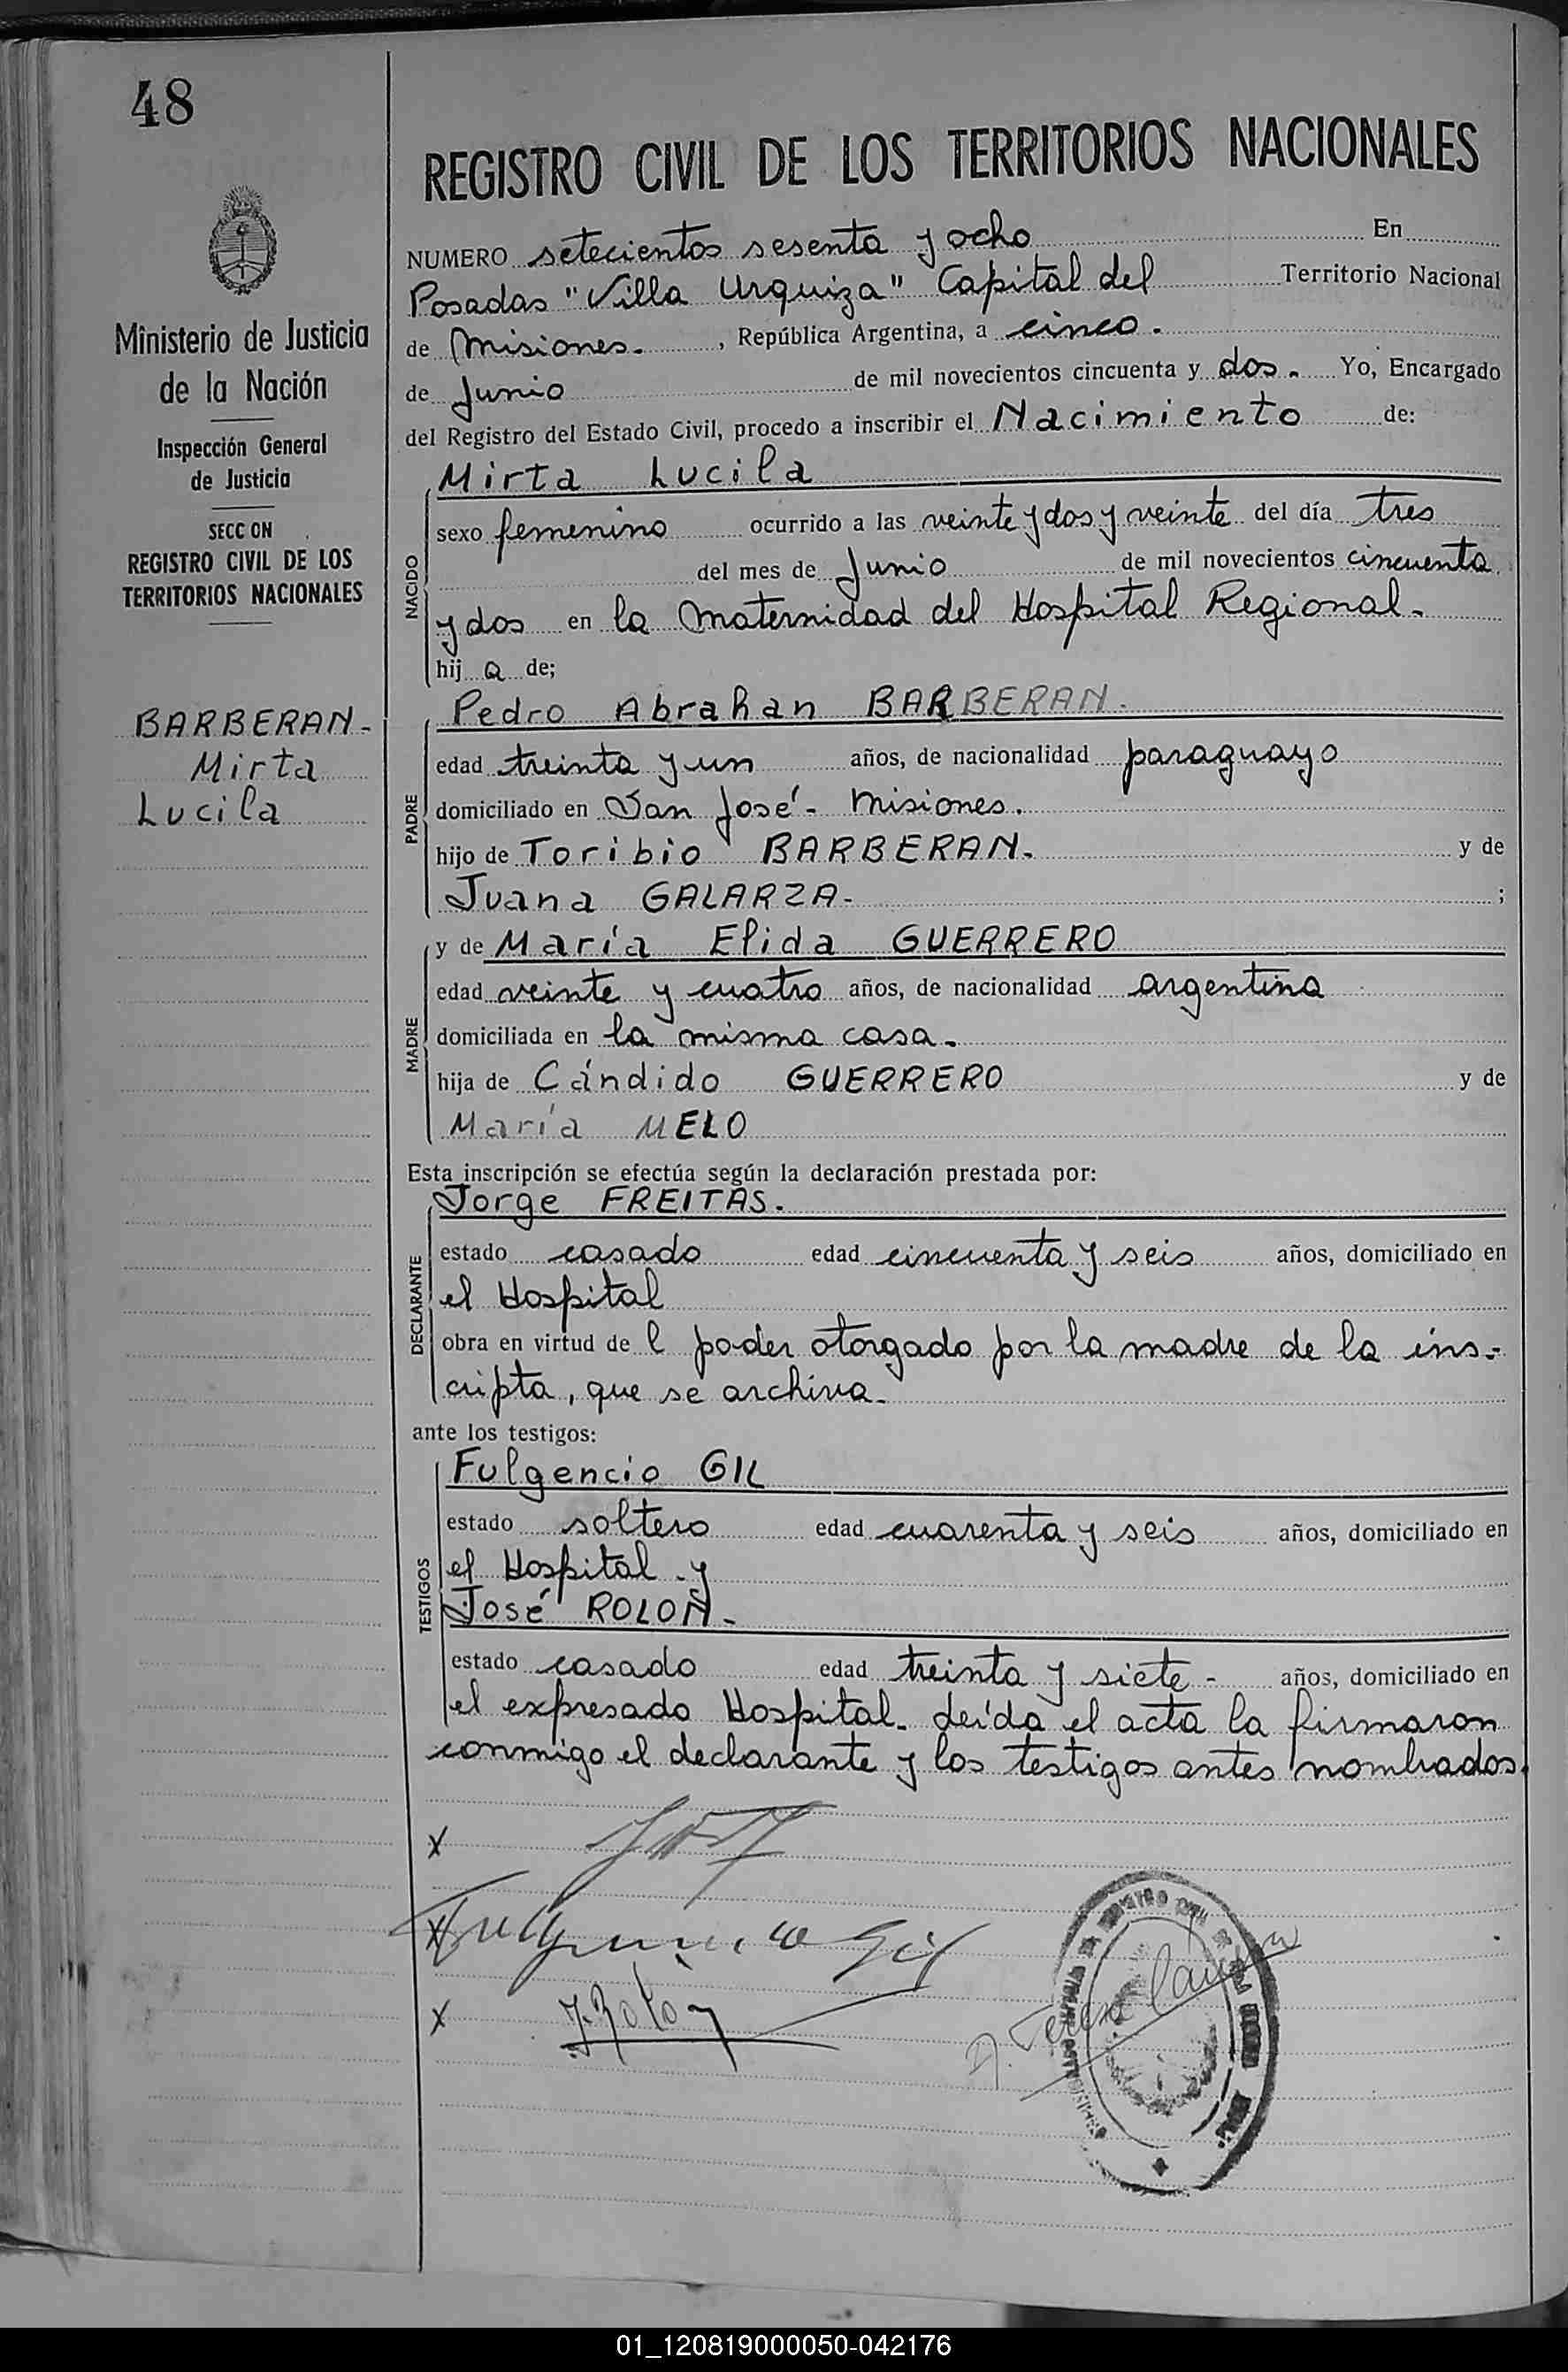 48
REGISTRO CIVIL DE LOS TERRITORIOS NACIONALES
NUMERO setecientos sesenta y ocho En
Posadas "Villa Urquiza" Capital del Territorio Nacional
de Misiones. , República Argentina, a cinco.
de Junio de mil novecientos cincuenta y dos. Yo, Encargado
del Registro del Estado Civil, procedo a inscribir el Nacimiento de:
Mirta Lucila
NACIDO
sexo femenino ocurrido a las veinte y dos y veinte del día tres
del mes de Junio de mil novecientos cincuenta
y dos en la Maternidad del Hospital Regional.
hij a de;
Pedro Abrahan BARBERAN.
PADRE
edad treinta y un años, de nacionalidad paraguayo
domiciliado en San José - Misiones.
hijo de Toribio BARBERAN. y de
Juana GALARZA- ;
y de María Elida GUERRERO
MADRE
edad veinte y cuatro años, de nacionalidad argentina
domiciliada en la misma casa.
hija de Cándido GUERRERO y de
María MELO
Esta inscripción se efectúa según la declaración prestada por:
Jorge FREITAS.
DECLARANTE
estado casado edad cincuenta y seis años, domiciliado en
el Hospital
obra en virtud de l poder otorgado por la madre de la ins-
cripta, que se archiva.
ante los testigos:
Fulgencio GIL
TESTIGOS
estado soltero edad cuarenta y seis años, domiciliado en
el Hospital y
José ROLON-
estado casado edad treinta y siete - años, domiciliado en
el expresado Hospital. Leída el acta la firmaron
conmigo el declarante y los testigos antes nombrados.
x
x Fulgencio Gil
x J. Rolon
Ministerio de Justicia
de la Nación
Inspección General
de Justicia
SECC ON
REGISTRO CIVIL DE LOS
TERRITORIOS NACIONALES
BARBERAN-
Mirta
Lucila
01_120819000050-042176